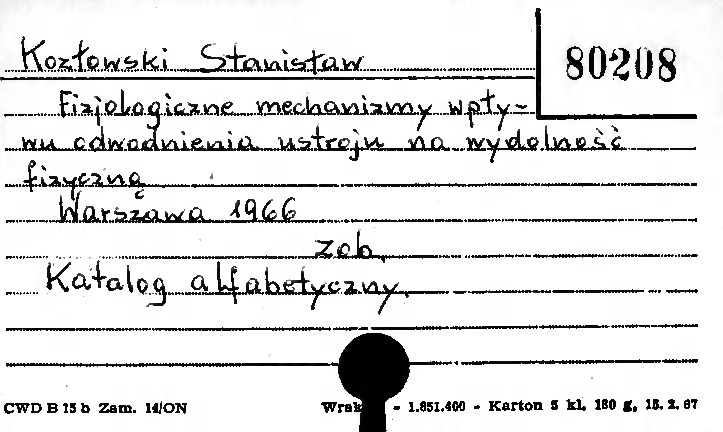 Kozłowski Stanisław
80208
Fizjologiczne mechanizmy wpły-
wu odwodnienia ustroju na wydolność
fizyczną
Warszawa 1966
zob.
Katalog alfabetyczny.
CWD B 75 b Zam. 14/ON - 1.851.400 - Karton 5 kl, 180 g, 15. 2. 67